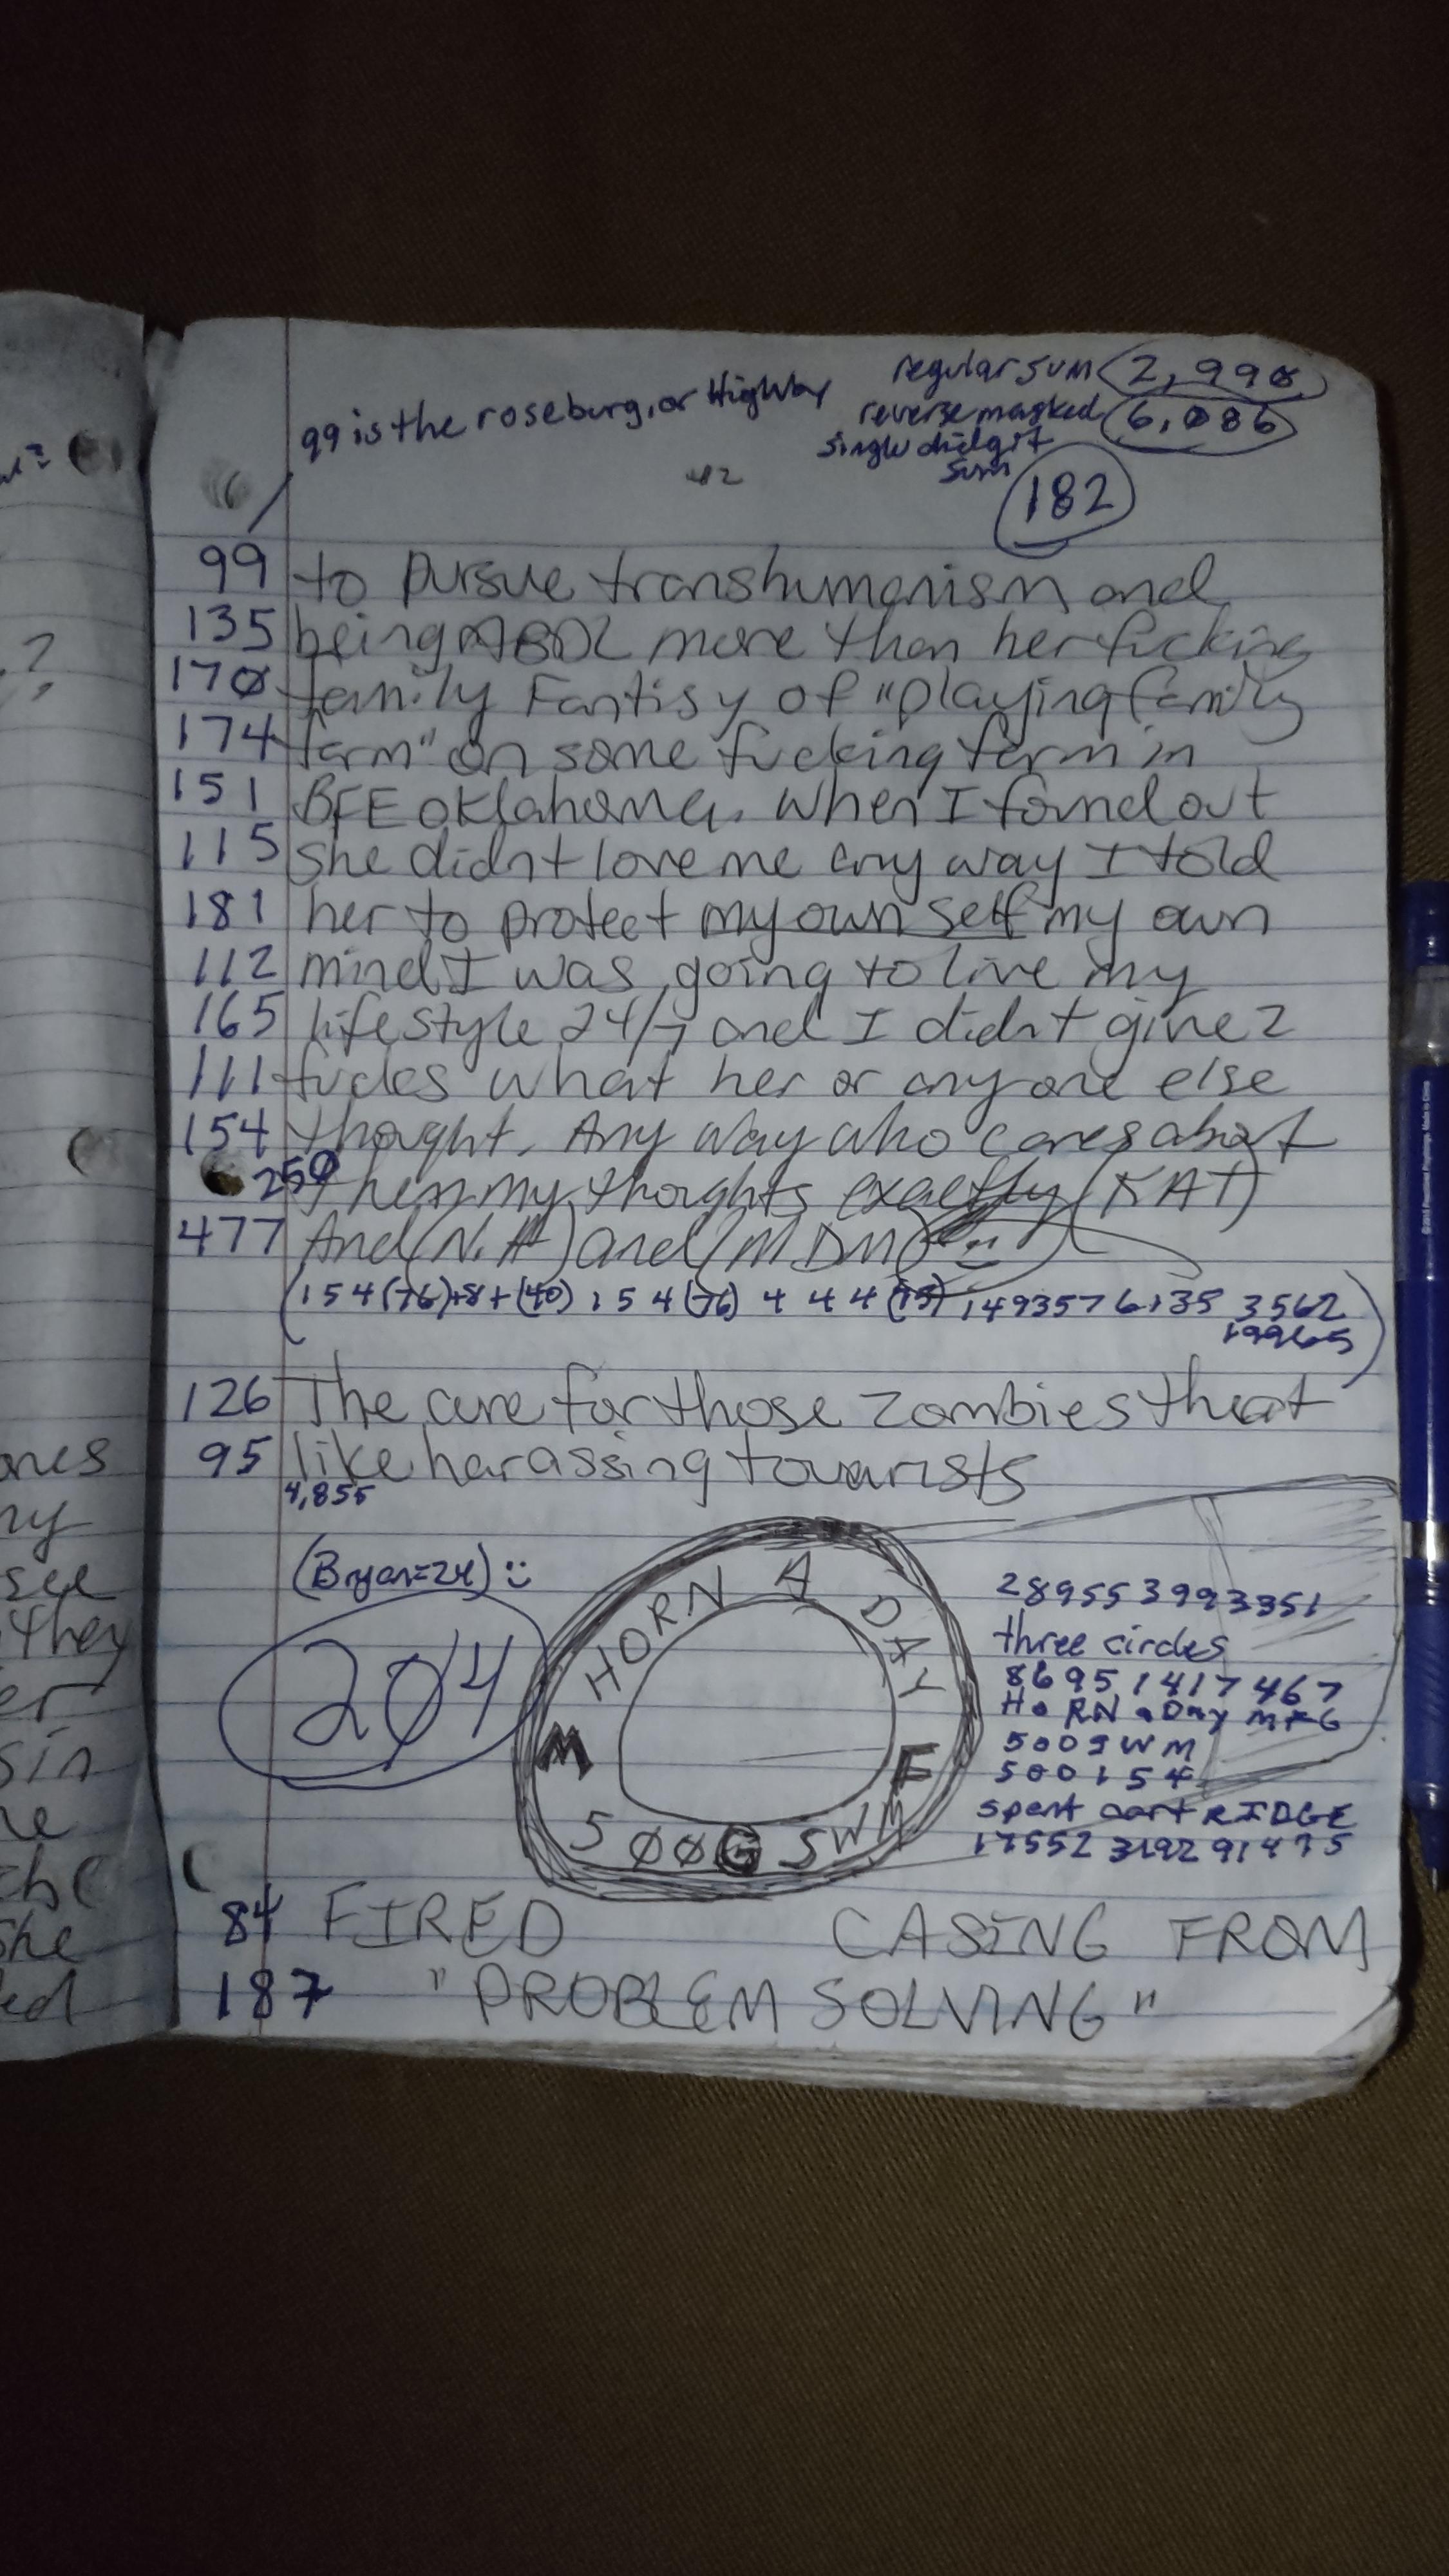 regular sum 2,990
99 is the roseburg, or Highway
reverse masked 6,086
single didgit
sum
182
42
99 to pursue transhumanism and
135 being ABDL more than her fucking
170 family Fantisy of "playing family
174 farm" on some fucking farm in
151 BFE oklahoma. When I found out
115 she didnt love me any way I told
181 her to protect my own self my own
112 mind I was going to live my
165 lifestyle 24/7 and I didnt give 2
111 fucks what her or anyone else
154 thought. Any way who cares about
250 them my thoughts exactly (KAT)
477 And (N.A) and (MDM)
(154(76)+8+(40) 154(76) 444(75) 1493576135 3562
19965)
126 The cure for those zombies that
95 like harassing tourists
4,855
(Bryan=24) :)
204
HORN A DAY
M F
500G SWM
289553993351
three circles
86951417467
HoRN a Day MFG
500gWM
500154
spent cartRIDGE
17552319291475
84 FIRED CASING FROM
187 "PROBLEM SOLVING"